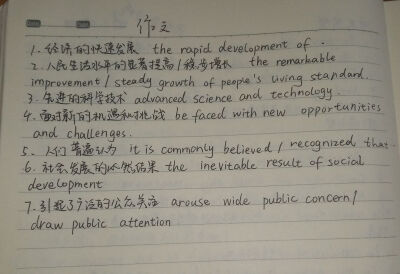 作文
1. 经济的快速发展 the rapid development of .
2. 人民生活水平的显著提高/稳步增长 the remarkable
improvement / steady growth of people's living standard.
3. 先进的科学技术 advanced science and technology.
4. 面对新的机遇和挑战 be faced with new opportunities
and challenges.
5. 人们普遍认为 it is commonly believed / recognized that.
6. 社会发展的必然结果 the inevitable result of social
development
7. 引起了广泛的公众关注 arouse wide public concern/
draw public attention